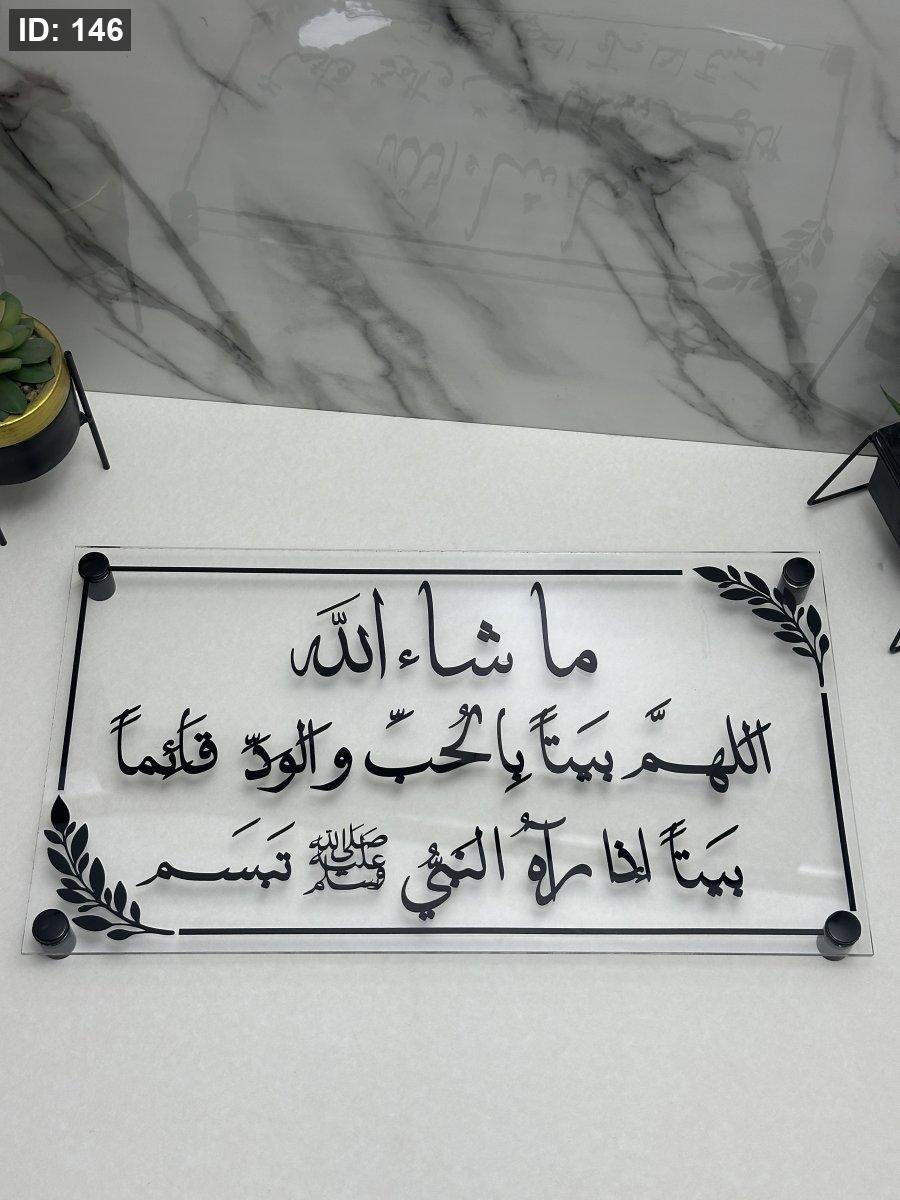 ID: 146
ما شاء الله
اللهمَّ بيَتاً بِالحُبِّ والودِّ قَائِماً
بيَتاً إذا رآهُ النَبيُّ ﷺ تبَسَم